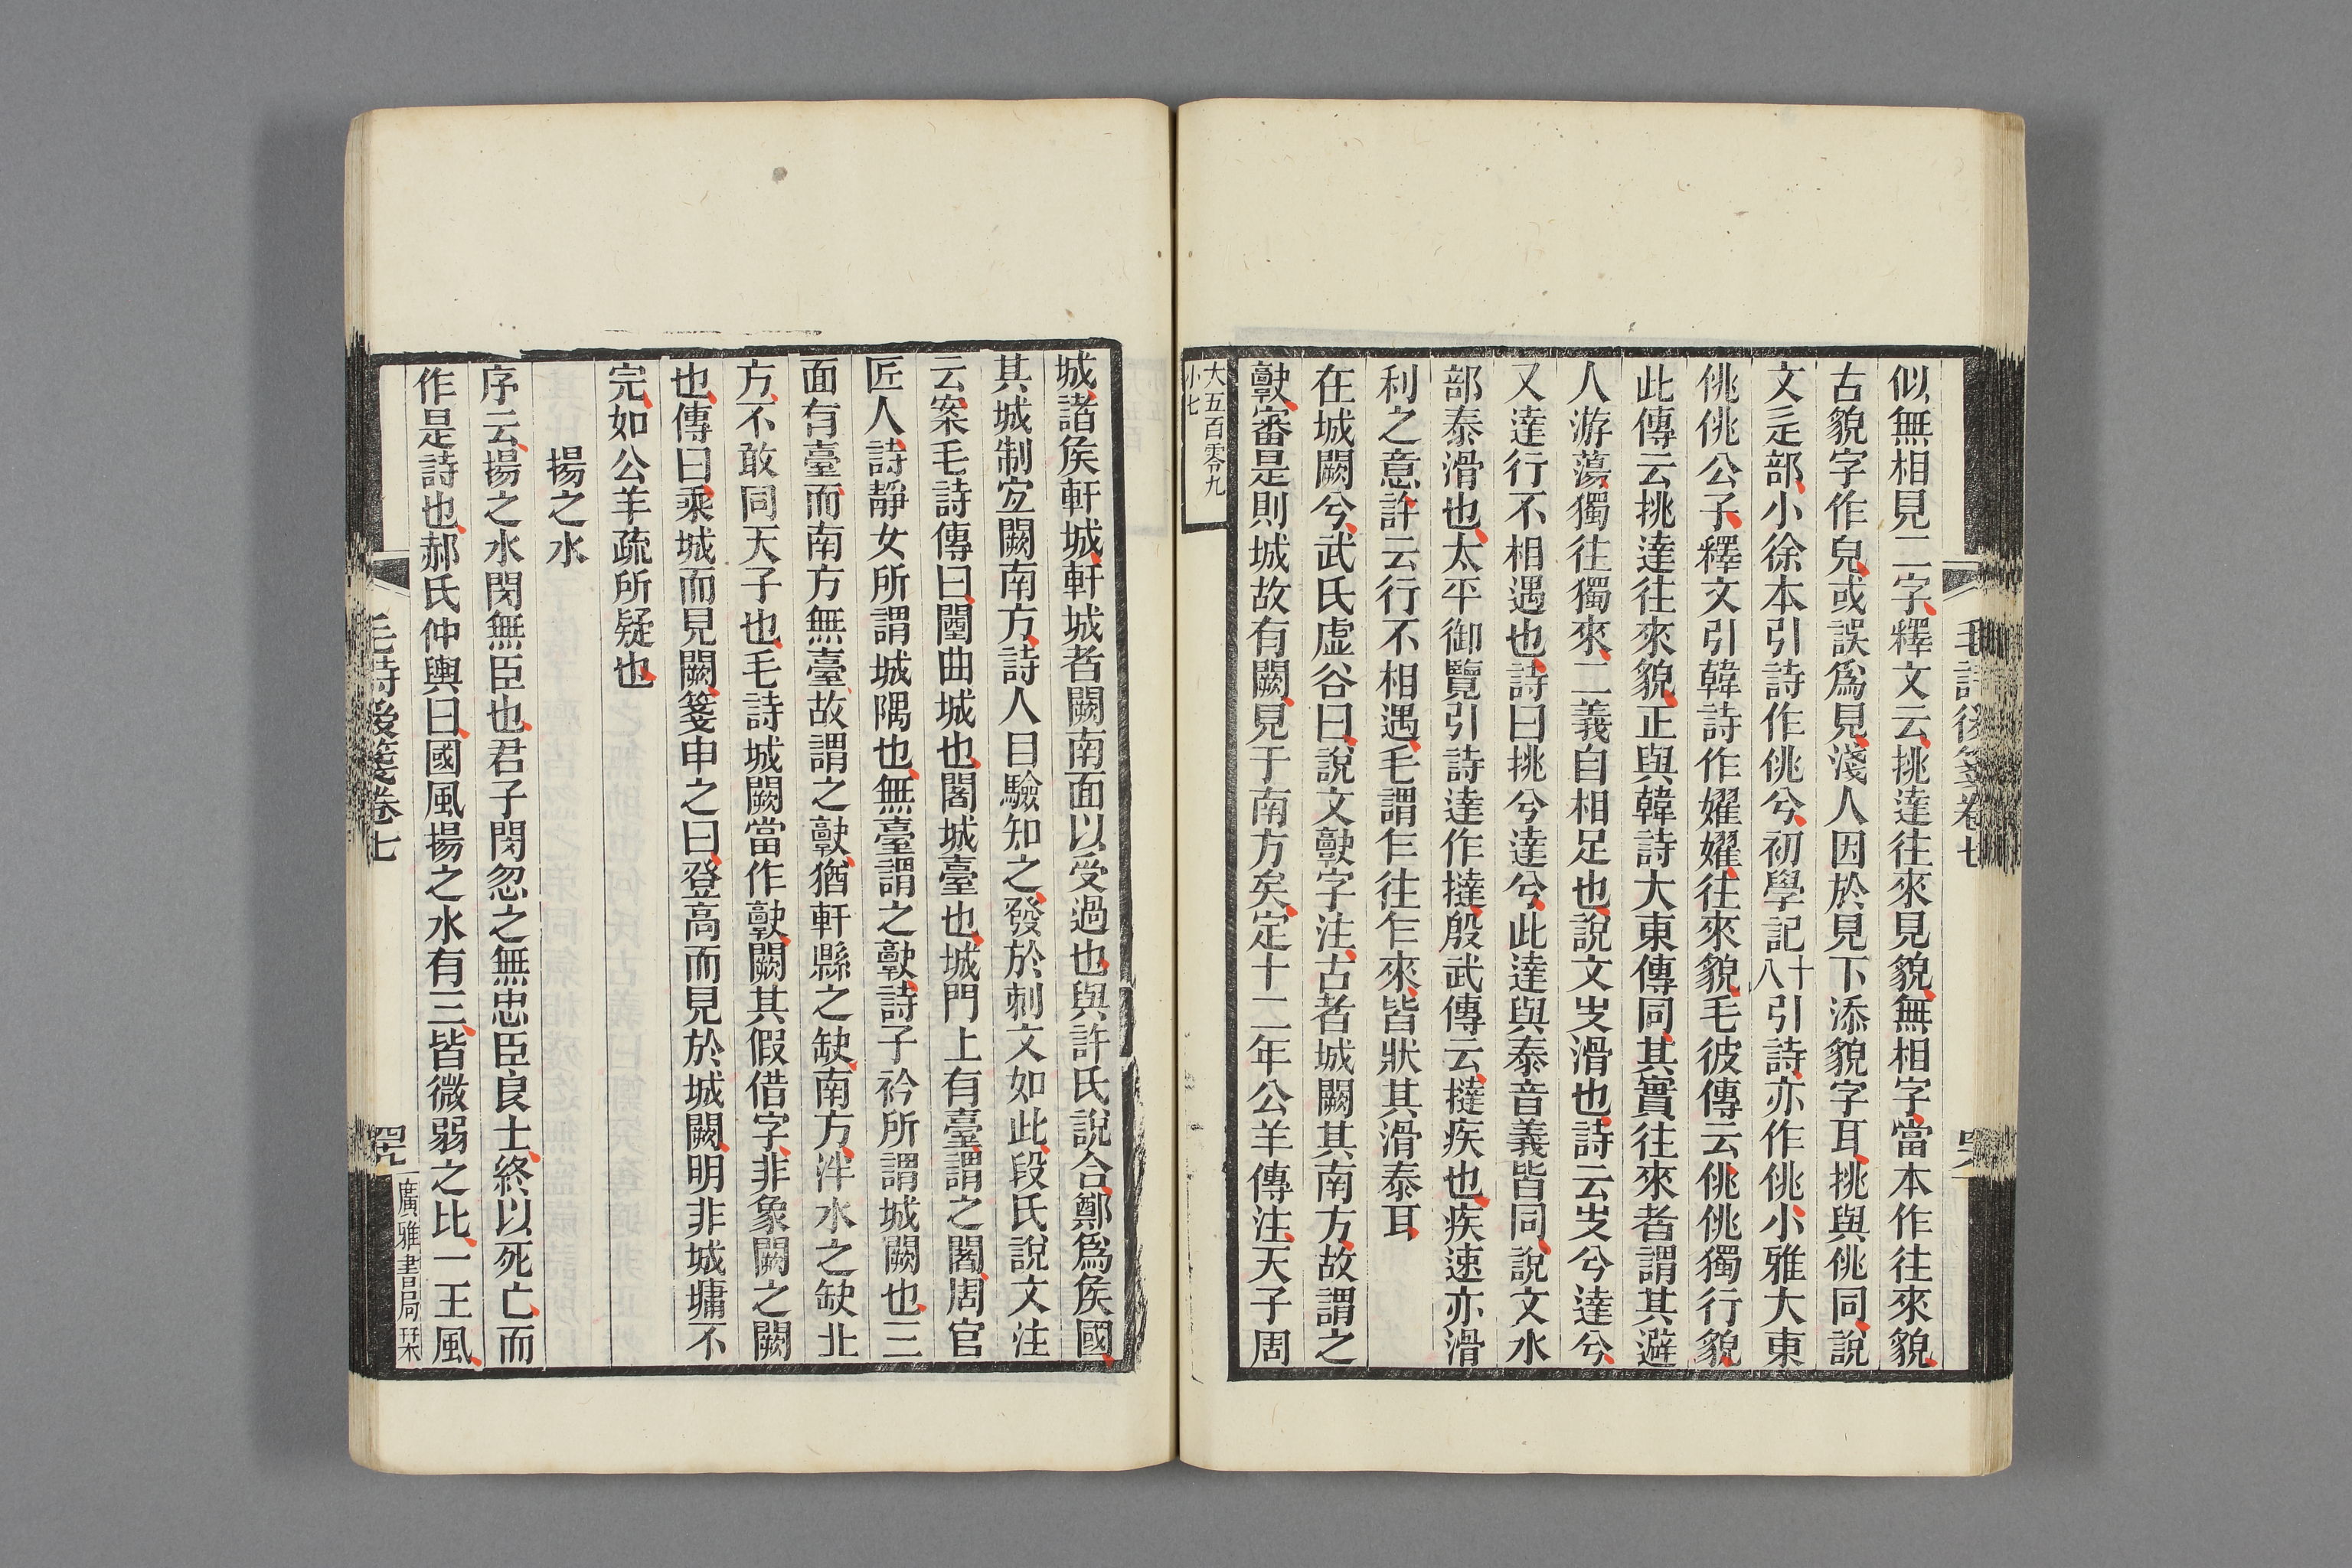 似無相見二字釋文云挑達往來見貌無相字當本作往來貌
古貌字作皃或誤爲見淺人因於見下添貌字耳挑與佻同說
文辵部小徐本引詩作佻兮初學記十八引詩亦作佻小雅大東
佻佻公子釋文引韓詩作嬥嬥往來貌毛彼傳云佻佻獨行貌
此傳云挑達往來貌正與韓詩大東傳同其實往來者謂其避
人游蕩獨往獨來二義自相足也說文㞢滑也詩云㞢兮達兮
又達行不相遇也詩曰挑兮達兮此達與泰音義皆同說文水
部泰滑也太平御覽引詩達作撻殷武傳云撻疾也疾速亦滑
利之意許云行不相遇毛謂乍往乍來皆狀其滑泰耳
在城闕兮武氏虚谷曰說文𨵵字注古者城闕其南方故謂之
𨵵審是則城故有闕見于南方矣定十二年公羊傳注天子周
大五百零九
小七
毛詩後箋卷七
城諸矦軒城軒城者闕南面以受過也與許氏說合鄭爲矦國
其城制宐闕南方詩人目驗知之發於刺文如此段氏說文注
云案毛詩傳曰闉曲城也闍城臺也城門上有臺謂之闍周官
匠人詩靜女所謂城隅也無臺謂之𨵵詩子衿所謂城闕也三
面有臺而南方無臺故謂之𨵵猶軒縣之缺南方泮水之缺北
方不敢同天子也毛詩城闕當作𨵵闕其假借字非象闕之闕
也傳曰乘城而見闕箋申之曰登高而見於城闕明非城墉不
完如公羊疏所疑也
揚之水
序云揚之水閔無臣也君子閔忽之無忠臣良士終以死亡而
作是詩也郝氏仲輿曰國風揚之水有三皆微弱之比一王風
毛詩後箋卷七
四九
廣雅書局栞